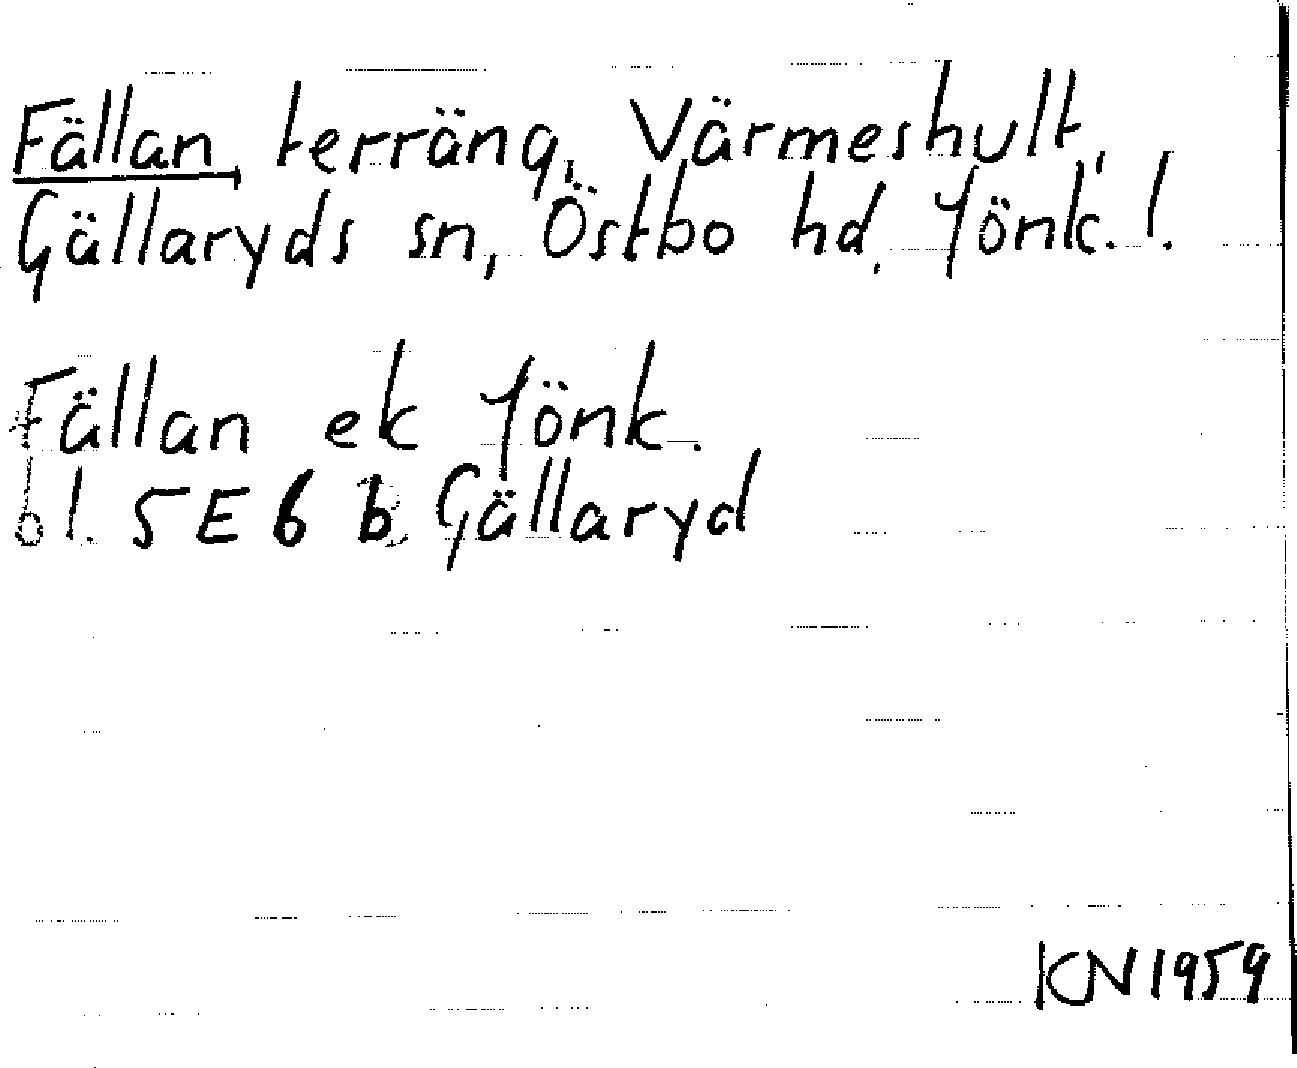 Fällan, terräng, Värmeshult,
Gällaryds sn, Östbo hd, Jönk. l.
Fällan ek Jönk.
bl. 5E6b Gällaryd
KN 1959